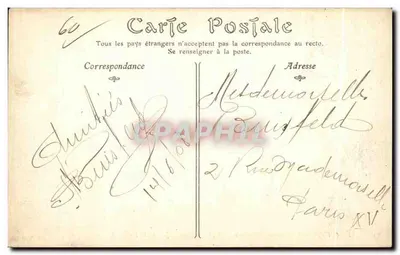 60
Carte Postale
Tous les pays étrangers n'acceptent pas la correspondance au recto.
Se renseigner à la poste.
Correspondance
Adresse
Amitiés
14/6/08
Mesdemoiselles
2 Rue Mademoiselle
Paris XV
CPAPHIL